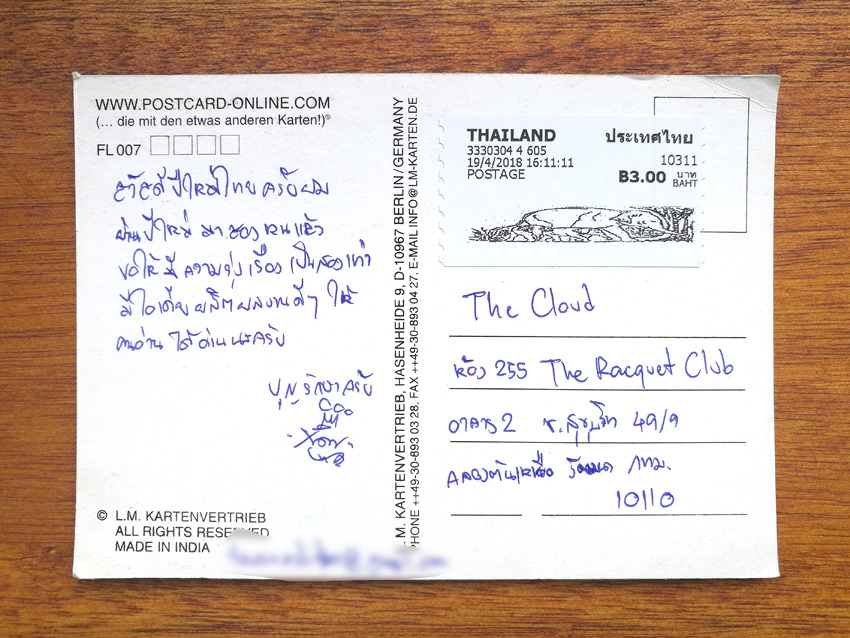 WWW.POSTCARD-ONLINE.COM
(... die mit den etwas anderen Karten!)®
FL 007
สวัสดีปีใหม่ไทย ครับผม
ผ่านปีใหม่ มา สอง หนแล้ว
ขอให้ มี ความรุ่งเรื่อง เป็นสองเท่า
มีไอเดีย ผลิต ผลงานดีๆ ให้
คนอ่าน ได้อ่าน นะครับ
ครับ
© L.M. KARTENVERTRIEB
ALL RIGHTS RESERVED
MADE IN INDIA
L.M. KARTENVERTRIEB, HASENHEIDE 9, D-10967 BERLIN/GERMANY
PHONE ++49-30-893 03 28, FAX ++49-30-893 04 27, E-MAIL INFO@LM-KARTEN.DE
THAILAND ประเทศไทย
3330304 4 605 10311
19/4/2018 16:11:11
POSTAGE ฿3.00 บาท
BAHT
The Cloud
ห้อง 255 The Racquet Club
อาคาร 2 ซ.สุขุมวิท 49/9
คลองตันเหนือ วัฒนา กทม.
10110